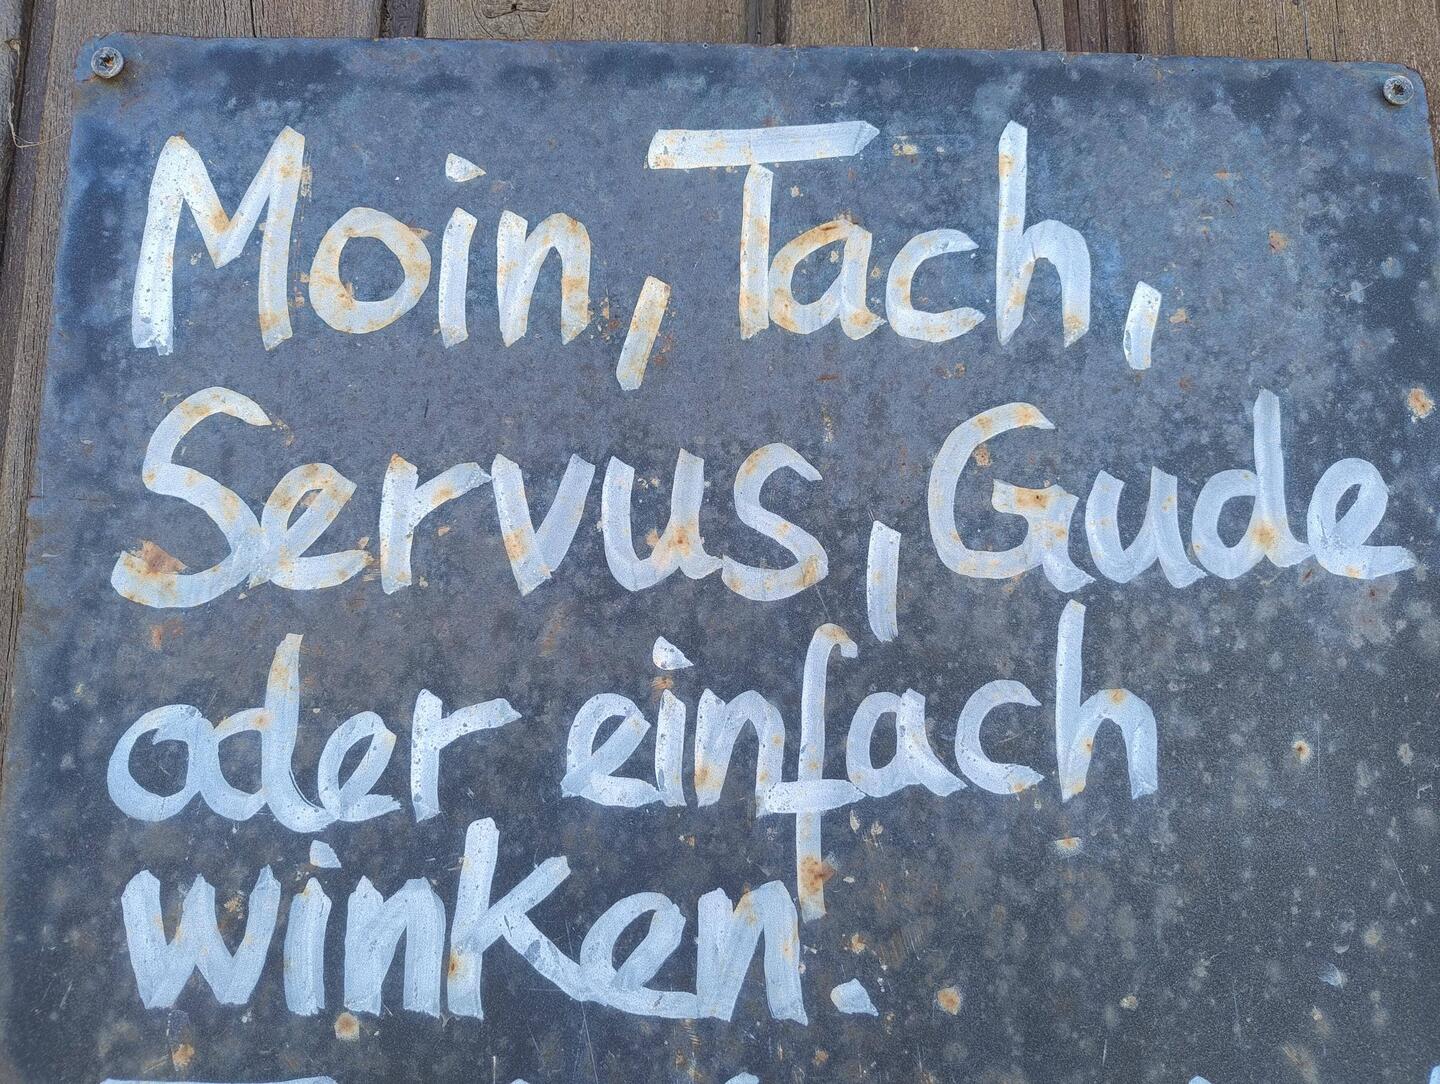 Moin, Tach,
Servus, Gude
oder einfach
winken.